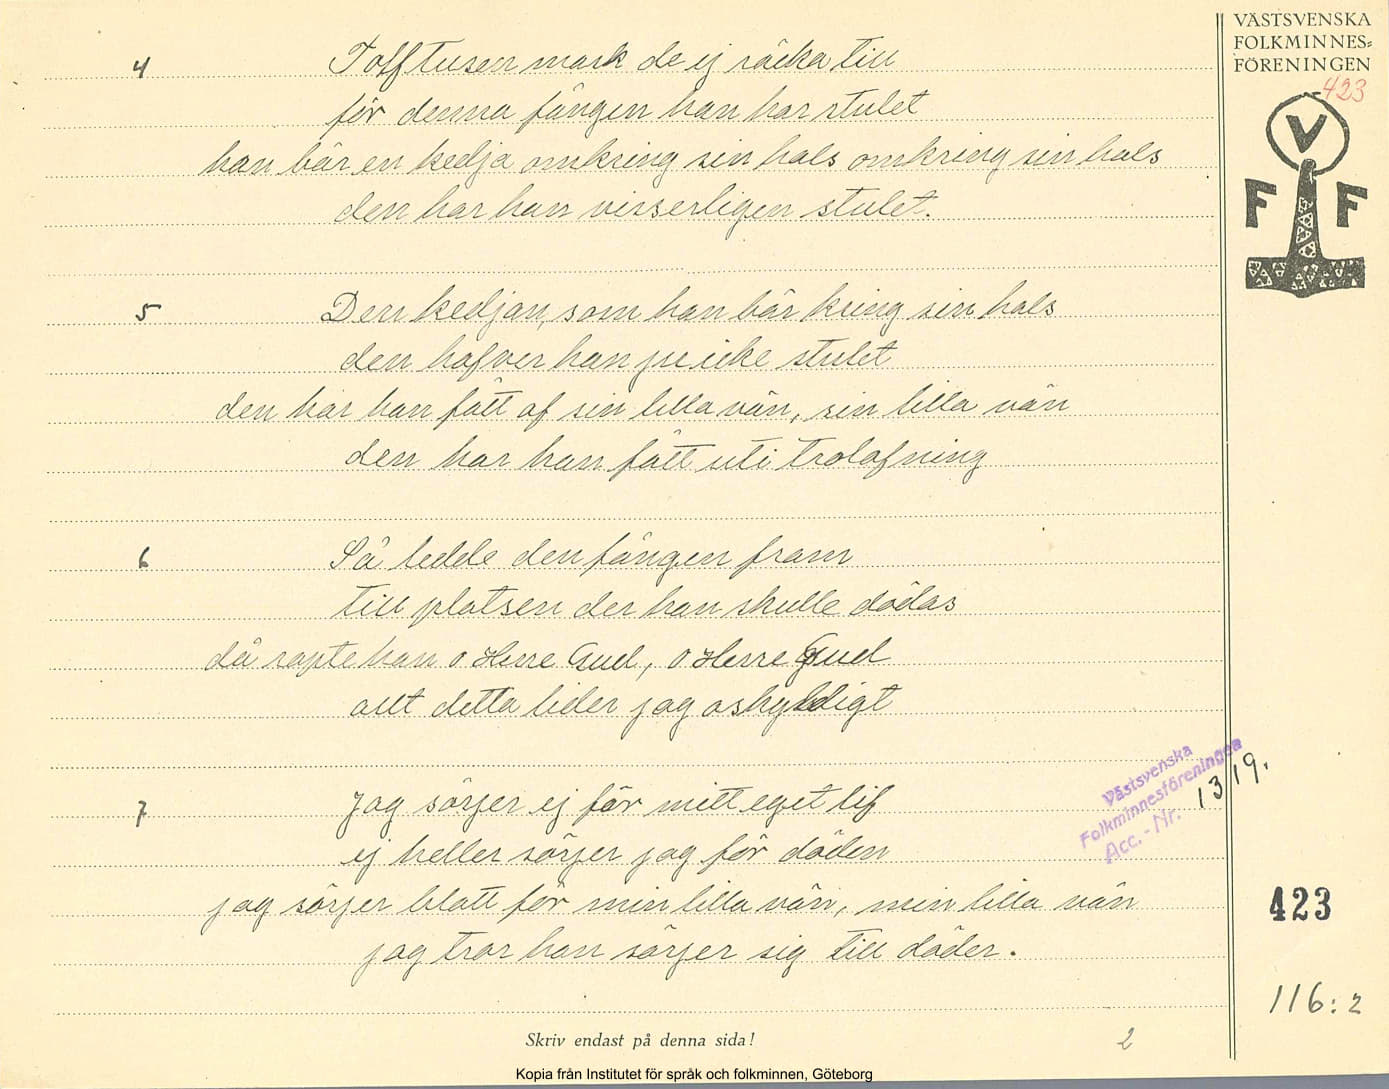 VÄSTSVENSKA
FOLKMINNES=
FÖRENINGEN
423
V
F F
4 Tolf tusen mark de ej räcka till
för denna fången han har stulet
han bär en kedja omkring sin hals omkring sin hals
den har han visserligen stulet.
5 Den kedjan, som han bär kring sin hals
den hafver han ju icke stulet
den har han fått af sin lilla vän, sin lilla vän
den har han fått uti trolofning
6 Så ledde den fången fram
till platsen der han skulle dödas
då ropte han o Herre Gud, o Herre Gud
allt detta lider jag oskyldigt
7 Jag sörjer ej för mitt eget lif
ej heller sörjer jag för döden
jag sörjer blott för min lilla vän, min lilla vän
jag tror han sörjer sig till döder.
Västsvenska
Folkminnesföreningen
Acc.-Nr. 1319.
423
116:2
Skriv endast på denna sida!
2
Kopia från Institutet för språk och folkminnen, Göteborg